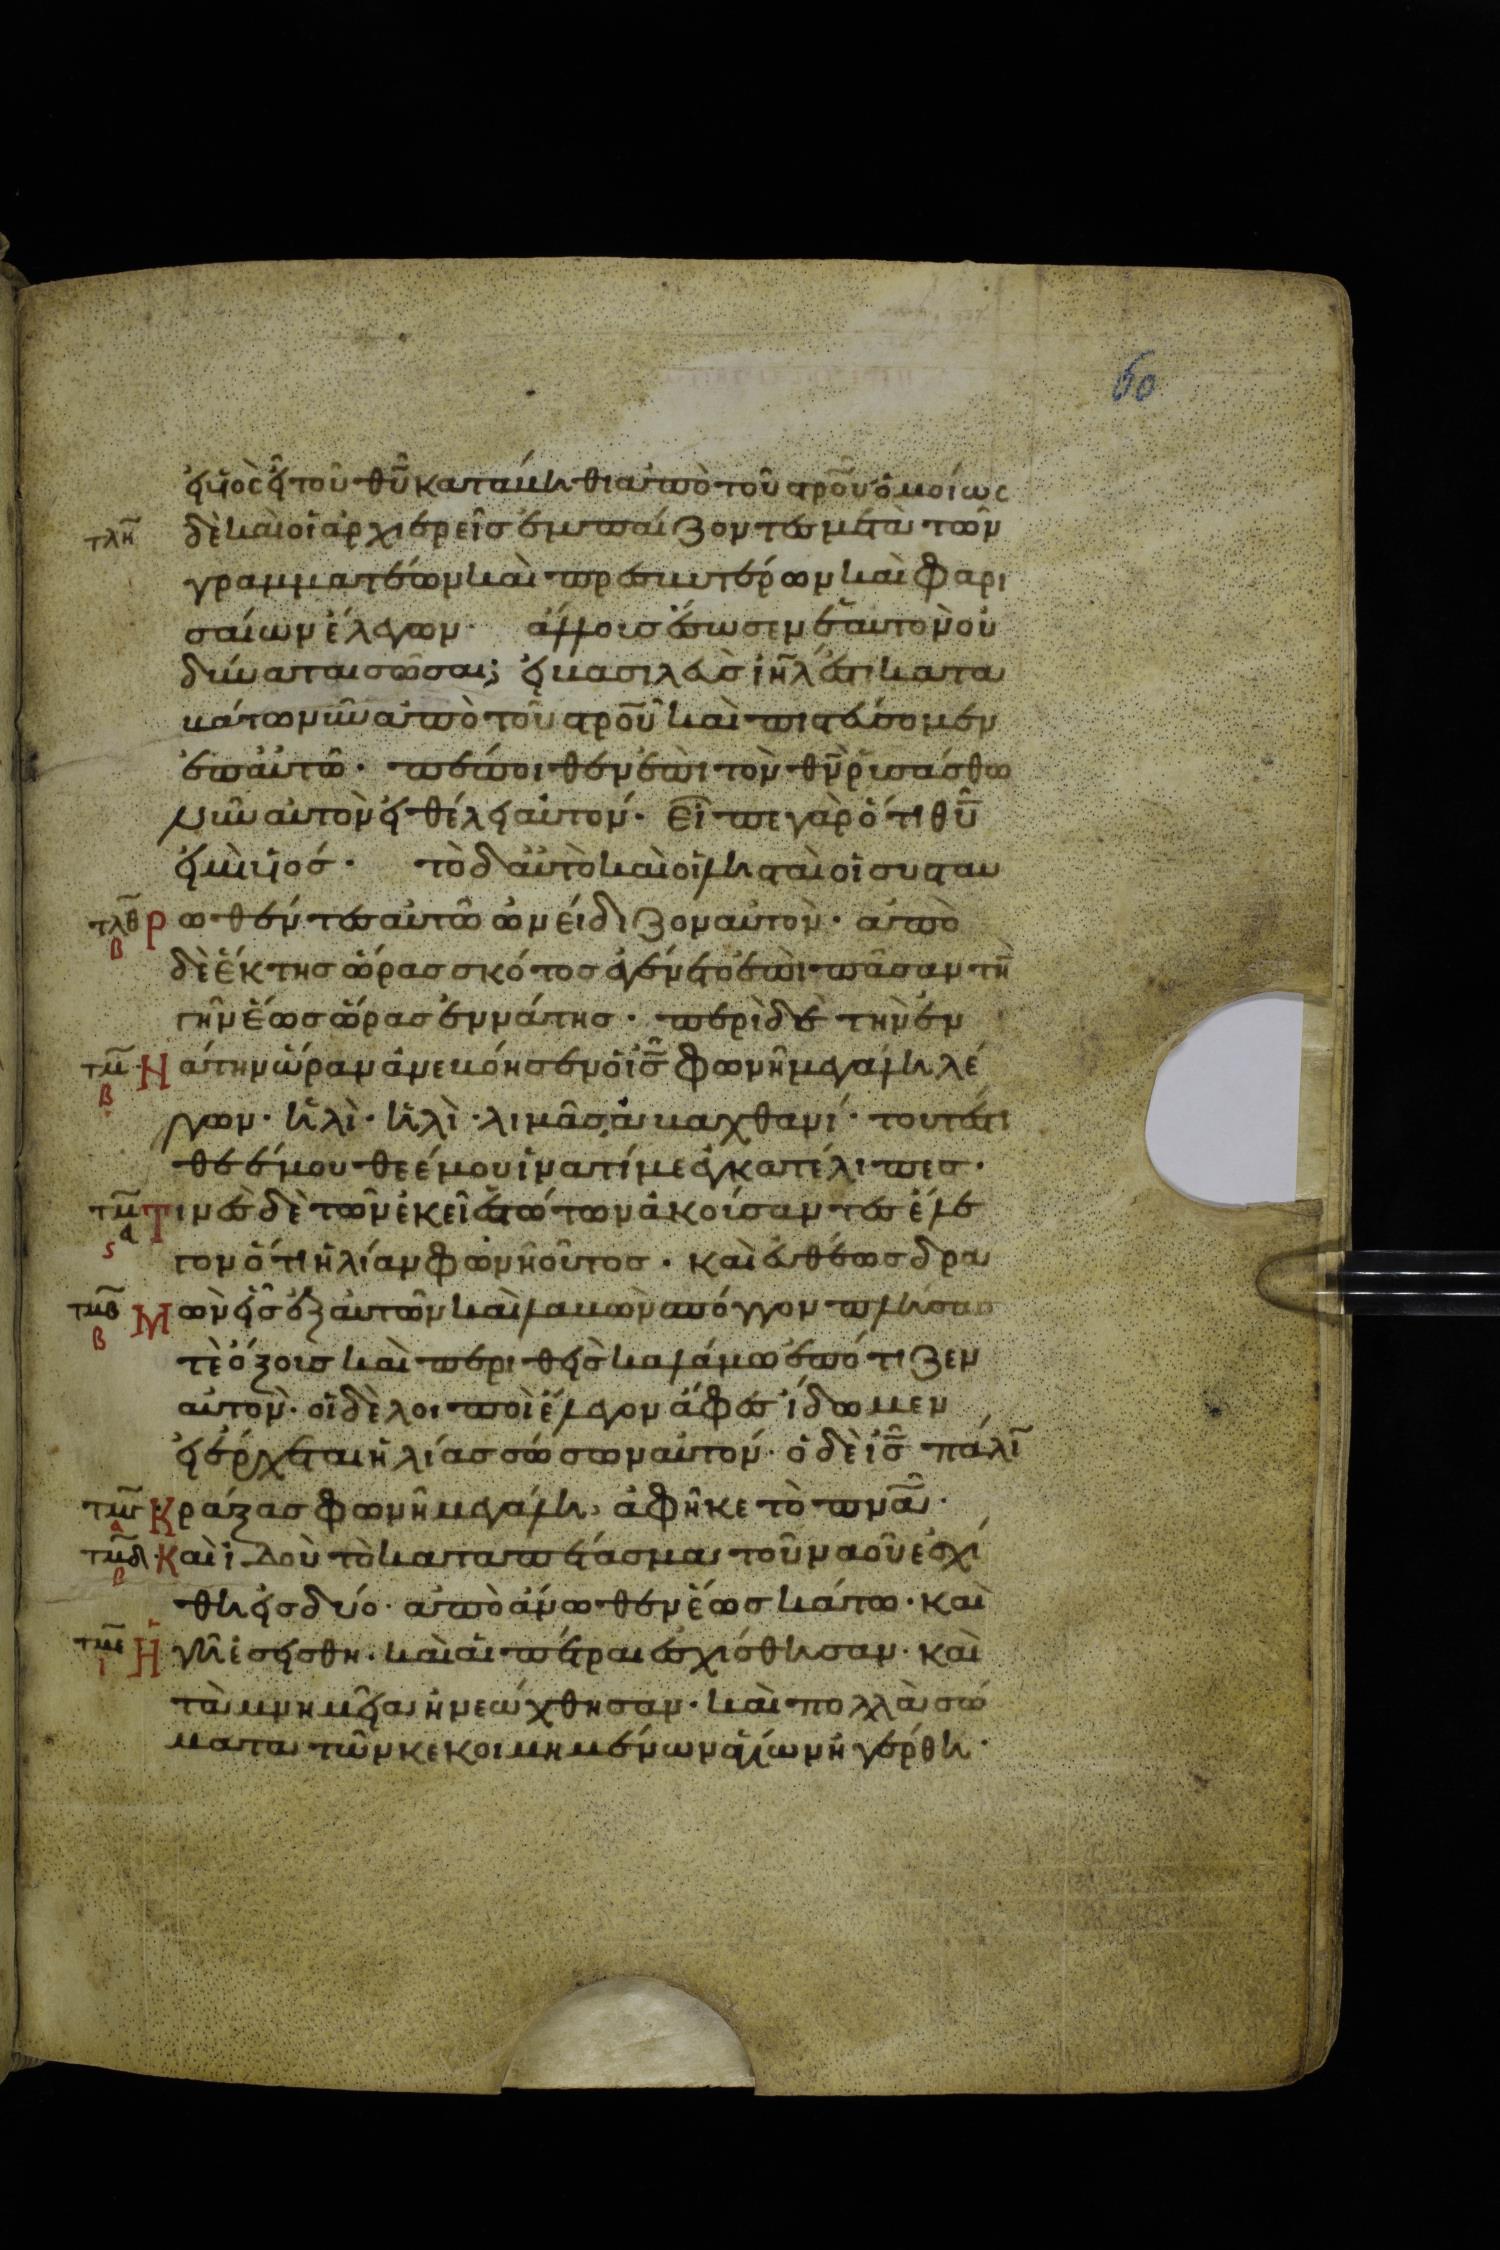 60
εἰ υἱὸς εἶ τοῦ θ̅υ̅ κατάβηθι ἀπὸ τοῦ στρο̅υ̅ ὁμοίως
τλη δὲ καὶ οἱ ἀρχιερεῖς ἐμπαίζοντες μετὰ τῶν
γραμματέων καὶ πρεσβυτέρων καὶ φαρι
σαίων ἔλεγον· ἄλλους ἔσωσεν ἑαυτὸν οὐ
δύναται σῶσαι; εἰ βασιλεὺς ι̅η̅λ̅ ἐστι κατα
βάτω νῦν ἀπὸ τοῦ στρο̅υ̅ καὶ πιστεύσομεν
ἐπ αὐτῶ· πέποιθεν ἐπὶ τὸν θ̅ν̅ ῥυσάσθω
νῦν αὐτὸν εἰ θέλει αὐτόν· εἶπε γὰρ ὅτι θ̅υ̅
εἰμὶ υἱός· τὸ δ αὐτὸ καὶ οἱ λησταὶ οἱ συσταυ
τλθ β Ρωθέντες αὐτῶ ὠνείδιζον αὐτὸν· ἀπὸ
δὲ ἕκτης ὥρας σκότος ἐγένετο ἐπὶ πᾶσαν τὴ̅
γῆν ἕως ὥρας ἐννάτης· περὶ δὲ τὴν ἐν
τμ β Νάτην ὥραν ἀνεβόησεν ὁ ι̅ς̅ φωνῆ μεγάλη λέ
γων· ἠλὶ· ἠλὶ· λιμᾶ σαβαχθανί· τουτέστι
θεέ μου θεέ μου ἱνατί με ἐγκατέλιπες·
τμα ς Τινὲς δὲ τῶν ἐκεῖ ἑστώτων ἀκούσαντες ἔλε
γον ὅτι ἠλίαν φωνῆ οὗτος· καὶ εὐθέως δρα
τμβ β Μὼν εἷς ἐξ αὐτῶν καὶ λαβὼν σπόγγον πλήσας
τὲ ὄξους καὶ περιθεὶς καλάμω ἐπότιζεν
αὐτὸν· οἱ δὲ λοιποὶ ἔλεγον ἄφες ἴδωμεν
εἰ ἔρχεται ἠλίας σώσων αὐτόν· ὁ δὲ ι̅ς̅ πάλι̅
τμγ α Κράξας φωνῆ μεγάλη, ἀφῆκε τὸ π̅ν̅α̅·
τμδ β Καὶ ἰδοὺ τὸ καταπέτασμα τοῦ ναοῦ ἐσχί
σθη εἰς δύο· ἀπὸ ἄνωθεν ἕως κάτω· καὶ
τμε ι Ἡ γῆ ἐσείσθη· καὶ αἱ πέτραι ἐσχίσθησαν· καὶ
τὰ μνημεῖα ἠνεώχθησαν· καὶ πολλὰ σώ
ματα τῶν κεκοιμημένων ἁγίων ἠγέρθη·